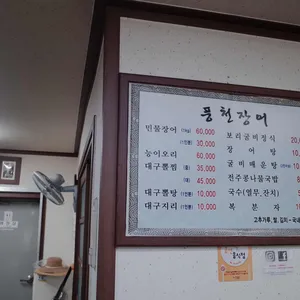 풍천장어
민물장어 (1kg) 60,000
(1인분) 30,000
능이오리 60,000
대구뽈찜 (중) 35,000
(대) 45,000
대구뽈탕 (1인분) 10,000
대구지리 (1인분) 10,000
보리굴비정식 20,
장어탕 10,
굴비매운탕 10,
전주콩나물국밥 8,
국수(열무,잔치)
복분자 10
고추가루, 쌀, 김치-국내